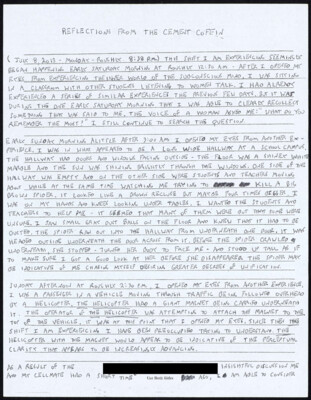 REFLECTIONS FROM THE CEMENT COFFIN
(JULY 8, 2013 - MONDAY - ROUGHLY 8:28 PM) THIS SHIFT I AM EXPERIENCING SEEMINGLY
BEGAN HAPPENING EARLY SATURDAY MORNING AT ROUGHLY 12:30 AM - AFTER I OPENED MY
EYES FROM EXPERIENCING THE INNER WORLD OF THE SUBCONSCIOUS MIND, I WAS SITTING
IN A CLASSROOM WITH OTHER STUDENTS LISTENING TO WOMEN TALK. I HAD ALREADY
EXPERIENCED A SERIES OF SIMILAR EXPERIENCES THE PREVIOUS FEW DAYS, BUT IT WAS
DURING THE ONE EARLY SATURDAY MORNING THAT I WAS ABLE TO CLEARLY RECOLLECT
SOMETHING THAT WAS SAID TO ME. THE VOICE OF A WOMAN ASKED ME: "WHAT DO YOU
REMEMBER THE MOST?" I STILL CONTINUE TO SEARCH THE QUESTION.
EARLY SUNDAY MORNING A LITTLE AFTER 2:00 AM I OPENED MY EYES FROM ANOTHER EX-
PERIENCE. I WAS IN WHAT APPEARED TO BE A LONG WIDE HALLWAY AT A SCHOOL CAMPUS,
THE HALLWAY HAD DOORS AND WINDOWS FACING OUTSIDE - THE FLOOR WAS A SHINEY WHITE
MARBLE AND THE SUN WAS SHINING BRIGHTLY THROUGH THE WINDOWS. ONE SIDE OF THE
HALL WAS EMPTY AND ON THE OTHER SIDE WERE STUDENTS AND TEACHERS MOVING
NOW WHILE AT THE SAME TIME WATCHING ME TRYING TO KILL A BIG
BROWN SPIDER. IT LOOKED LIKE A BROWN RECLUSE BUT MAYBE FOUR TIMES BIGGER. I
WAS ON MY HANDS AND KNEES LOOKING UNDER TABLES. I WANTED THE STUDENTS AND
TEACHERS TO HELP ME - IT SEEMED THAT MANY OF THEM WERE BUT THAT SOME WERE
UNSURE. I SAW SMALL GRAY DUST BALLS ON THE FLOOR AND KNEW THAT IT HAD TO BE
CLOSE. THE SPIDER RAN OUT INTO THE HALLWAY FROM UNDERNEATH ONE DOOR, IT WAS
HEADED OUTSIDE UNDERNEATH THE DOOR ACROSS FROM IT. BEFORE THE SPIDER CRAWLED
UNDERNEATH SHE STOPPED - TURNED HER BODY TO FACE ME - AND STOOD UP TALL AS IF
TO MAKE SURE I GOT A GOOD LOOK AT HER BEFORE SHE DISAPPEARED. THE SPIDER MAY
BE INDICATIVE OF ME CHASING MYSELF DESIRING GREATER DEGREES OF UNIFICATION.
SUNDAY AFTERNOON AT ROUGHLY 2:30 PM. I OPENED MY EYES FROM ANOTHER EXPERIENCE,
I WAS A PASSENGER IN A VEHICLE MOVING THROUGH TRAFFIC BEING FOLLOWED OVERHEAD
BY A HELICOPTER, THE HELICOPTER HAD A GIANT MAGNET BEING CARRIED UNDERNEATH
IT. THE OPERATOR OF THE HELICOPTER WAS ATTEMPTING TO ATTACH THE MAGNET TO THE
TOP OF THE VEHICLE. IT WAS AT THIS POINT THAT I OPENED MY EYES. SINCE THEN THE
SHIFT I AM EXPERIENCING I HAVE BEEN PERSISTENTLY TRYING TO UNDERSTAND. THE
HELICOPTER WITH THE MAGNET WOULD APPEAR TO BE INDICATIVE OF THE PERCEPTUAL
CLARITY THAT APPEARS TO BE INCREASINGLY ADVANCING.
AS A RESULT OF THE INSIGHTFUL DISCUSSION ME
AND MY CELLMATE HAD A SHORT TIME AGO, I AM ABLE TO CONSIDER